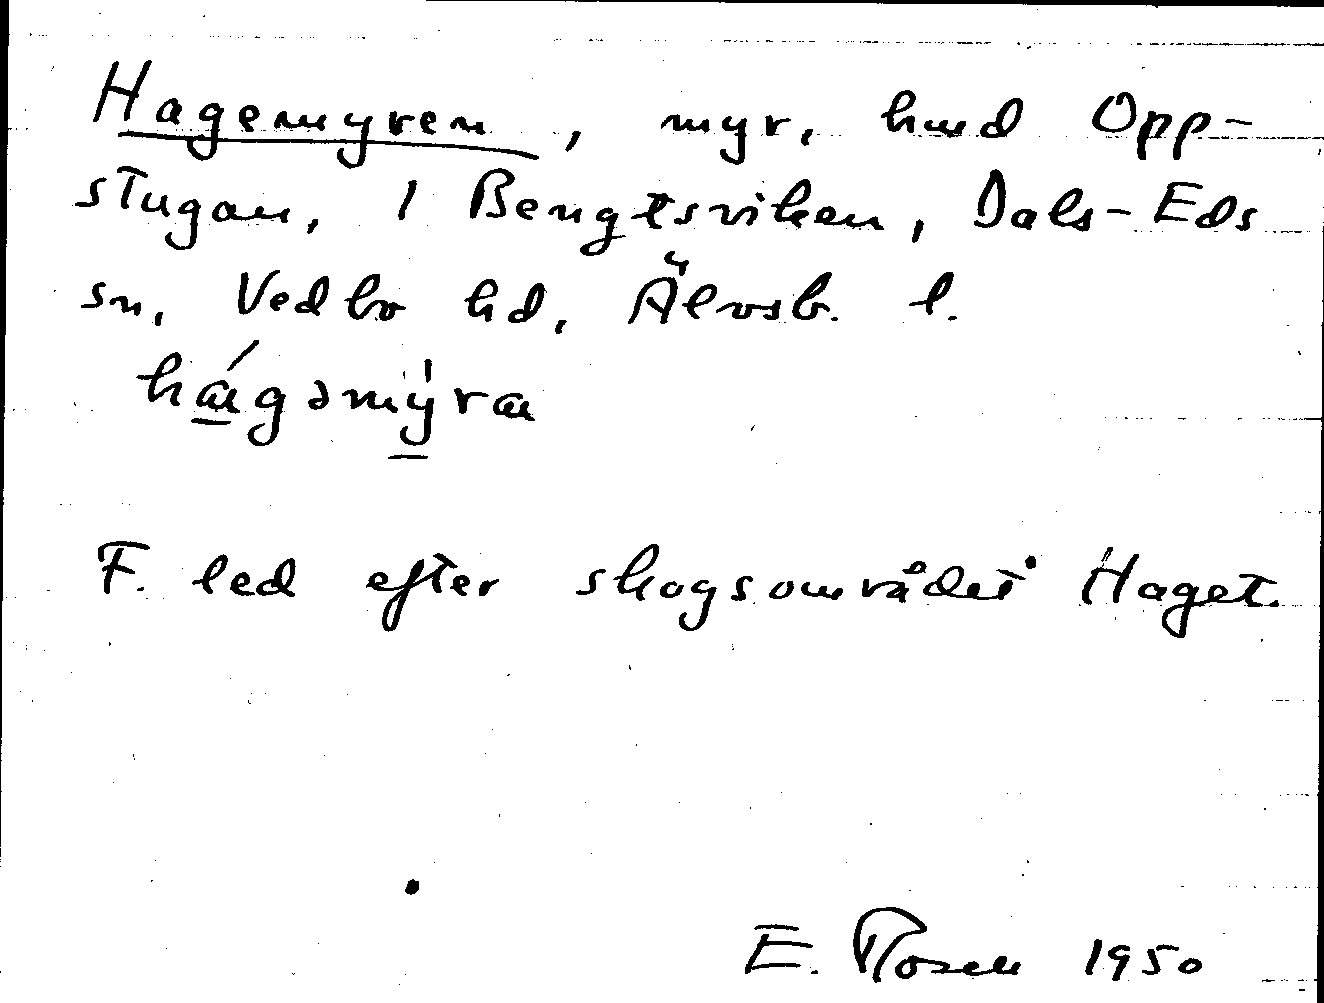 Hagemyren, myr, hmd Opp-
stugan, 1 Bengtsviken, Dals-Eds
sn, Vedbo hd, Älvsb. l.
hágəmỳra
F. led efter skogsområdet Haget.
E. Rosell 1950